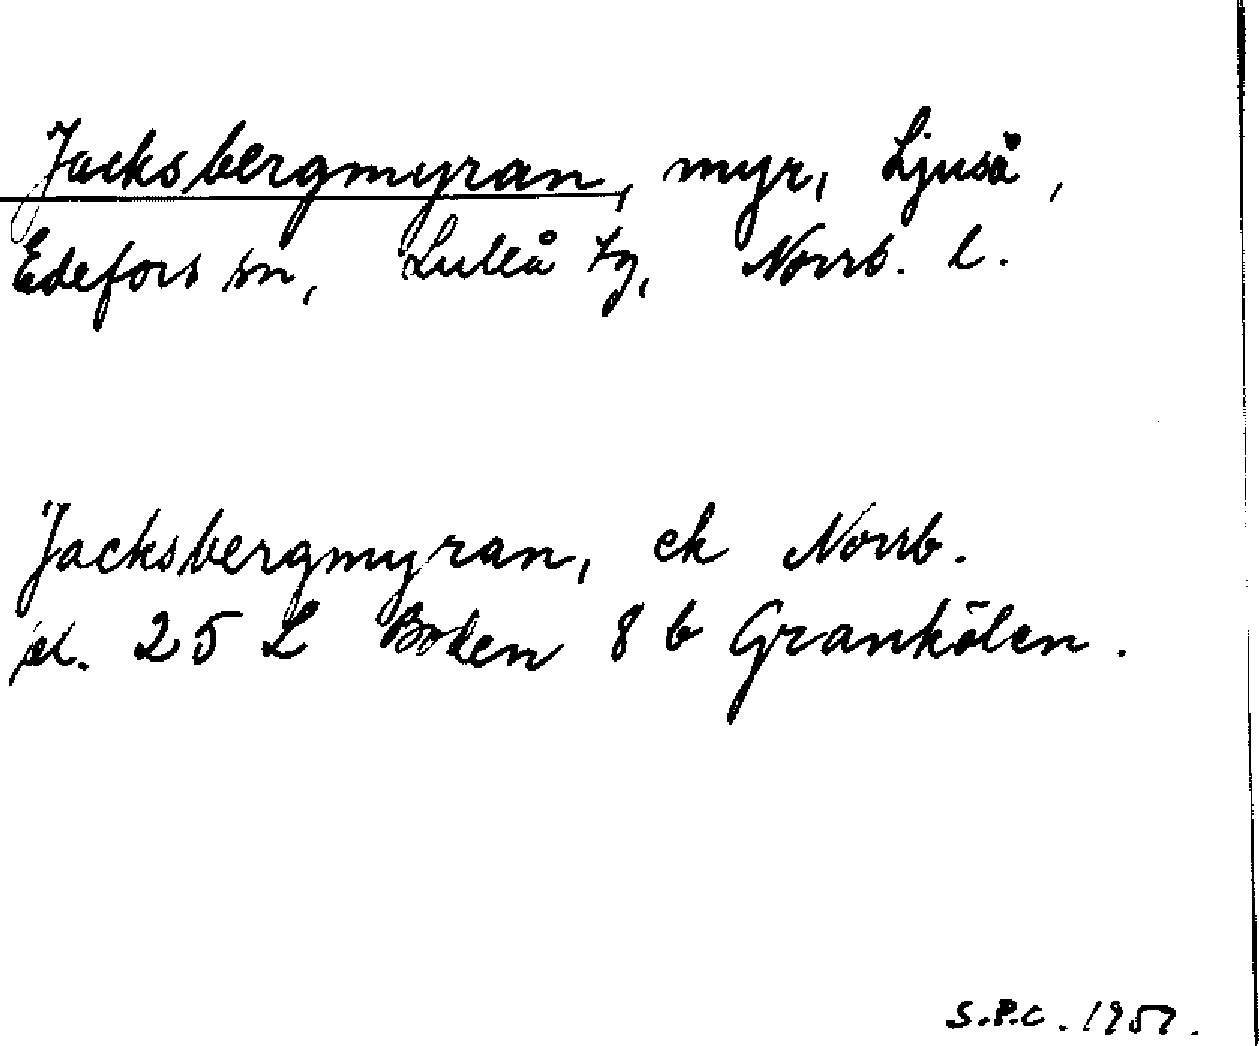 Jacksbergmyran, myr, Ljuså,
Edefors sn, Luleå tg, Norrb. l.
Jacksbergmyran, ek Norrb.
bl. 25 L Boden 8 b Grankölen.
S.P.C. 1957.